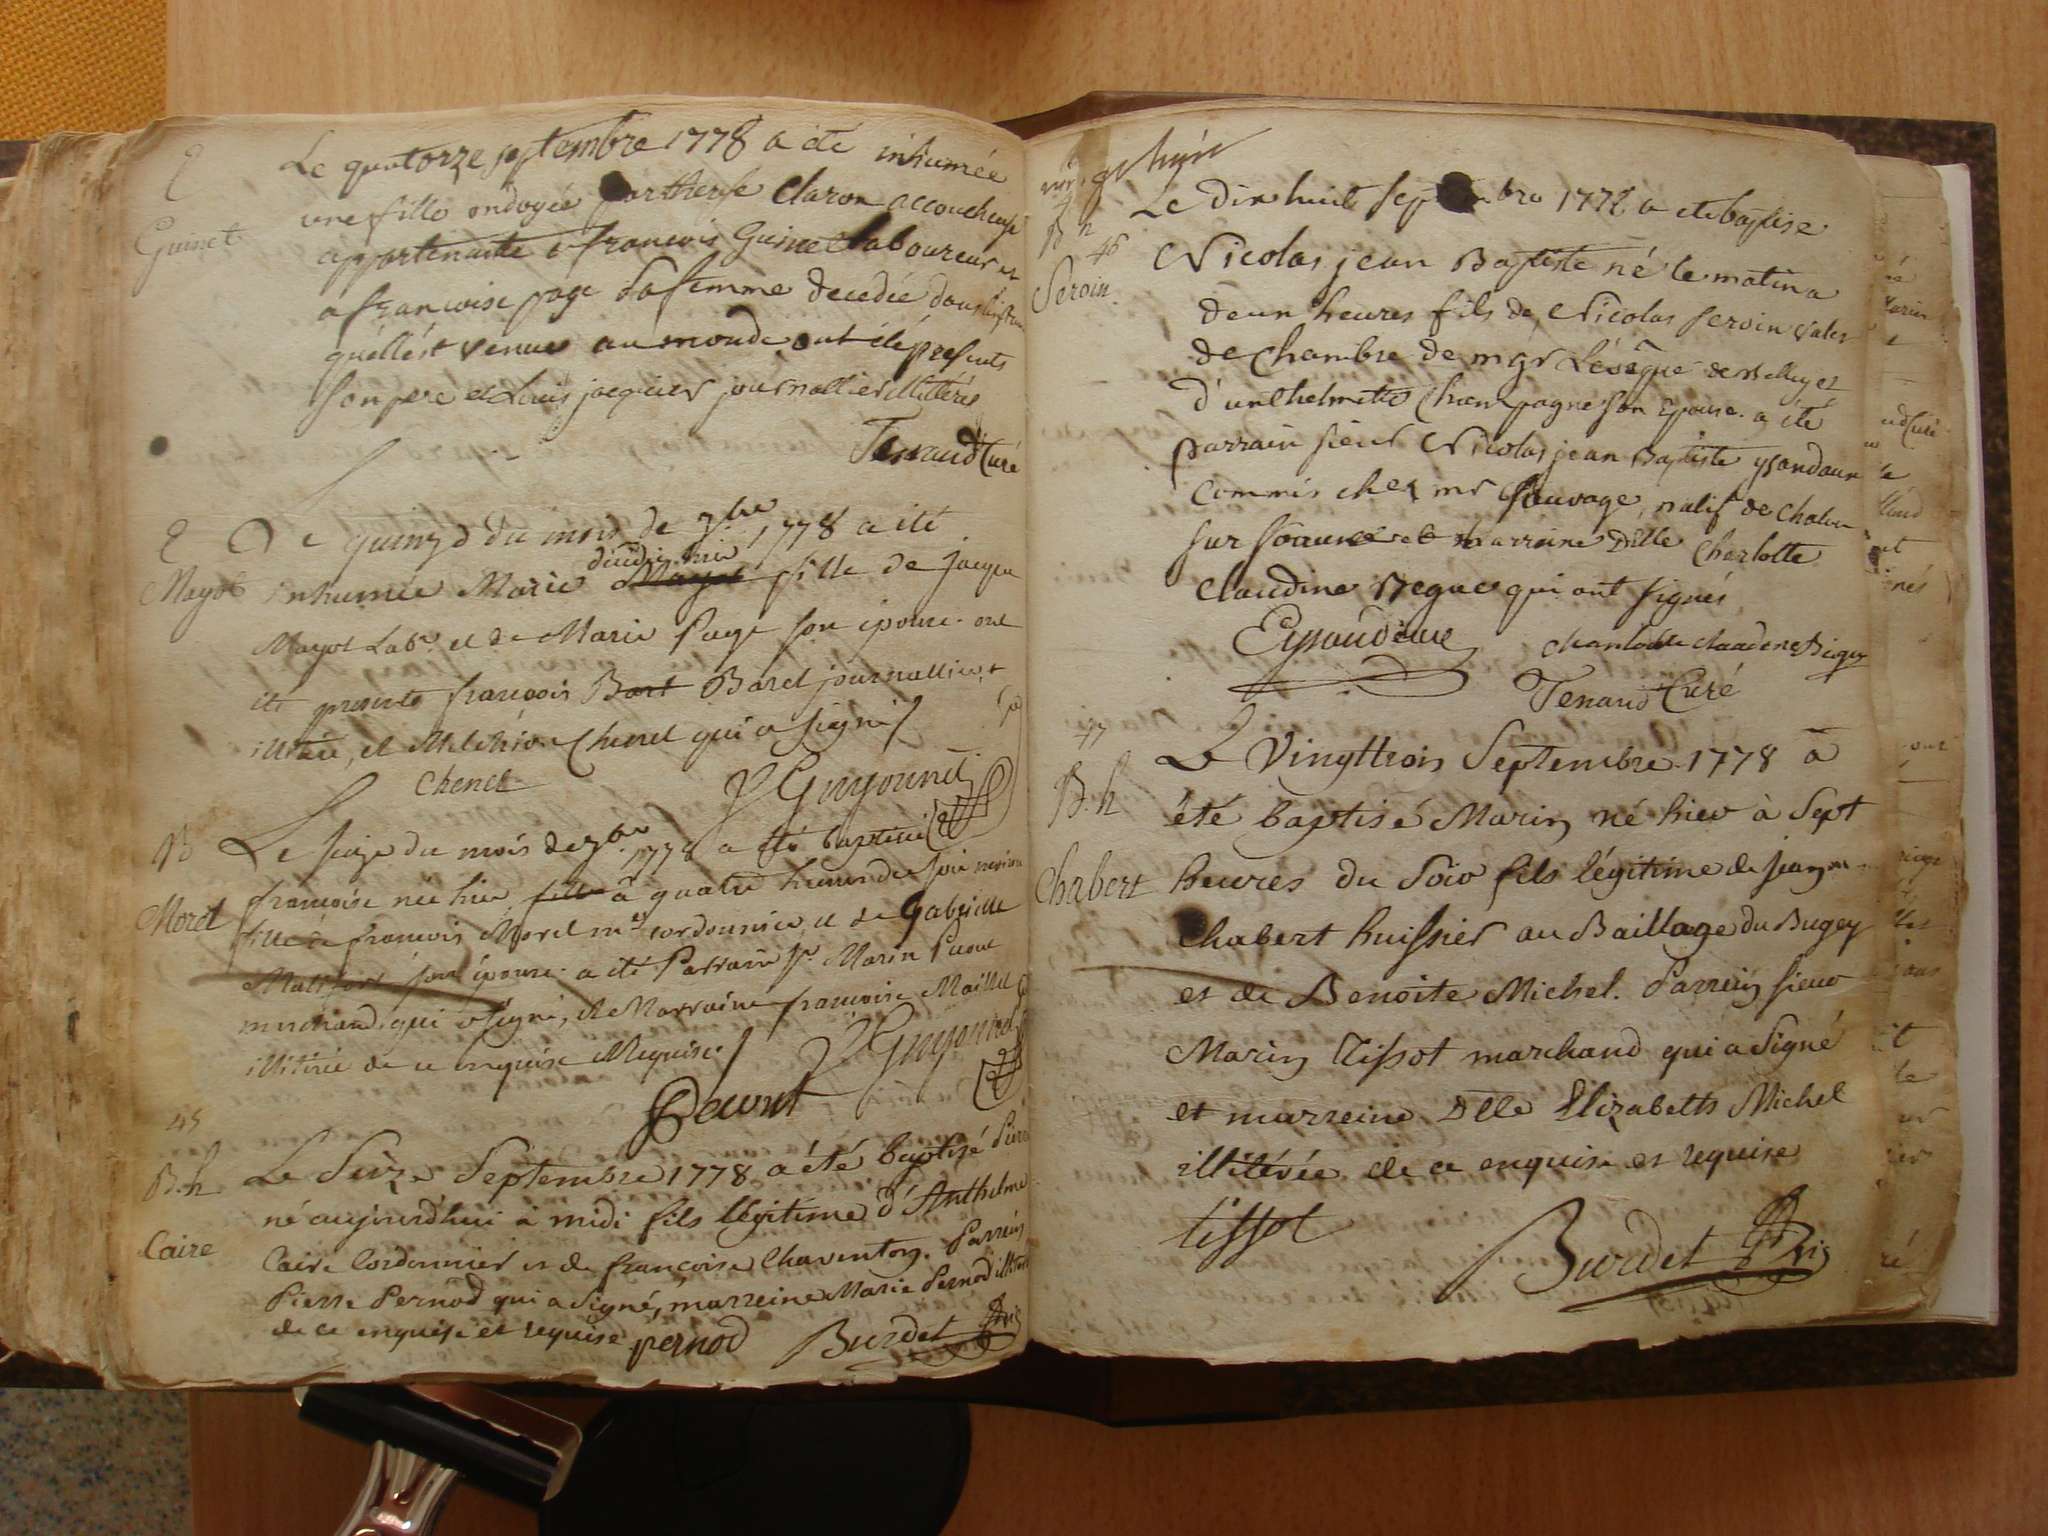 E
Guinet
Le quatorze septembre 1778 a été inhumée
une fille ondoyée par therese Claron accoucheuse
appartenante a francois Guinet laboureur et
a francoise page sa femme decedée dans
quelle est venue au monde ont été présents
son pere et Louis jacquier journallier illitérés
Tenaud Curé
E
Mayot
Le quinze du mois de 7bre 1778 a été
decedée hier
inhumée Marie Mayot fille de jacque
Mayot Labr. et de Marie Page son épouse. ont
été presents francois Bart Baret journallier
illitéré, et Melchior Chenel qui a signé
Chenel
Guyonnet
B
Morel
Le seize du mois de 7bre 1778 a été baptisée
francoise née hier fille à quatre heures du soir
fille de francois Morel me. cordonnier, et de Gabrielle
son épouse. a été Parrain sr. Marin Pavont
marchand qui a signé, et Marraine francoise Maillet
illitérée de ce enquise et requise
Guyonnet
Pavont
45
B.h
Caire
Le Seize Septembre 1778 a été baptisé
né aujourd'hui à midi fils légitime d'Anthelme
Caire Cordonnier et de françoise Chaventon. Parrein
Pierre Pernod qui a signé, marreine Marie Pernod
de ce enquise et requise pernod
Burdet
vingt huit
B h
46
Seroin.
Le dix huit septembre 1778 a ete baptise
Nicolas jean Baptiste né le matin a
deux heures fils de Nicolas seroin valet
de Chambre de mgr L'évêque de Belley et
d'anthelmette Champagne son Epouse. a été
parrain sieur Nicolas jean Baptiste
Commis chez mr sauvage, natif de Chalon
sur soaune et marraine Dlle Charlotte
Claudine Begue qui ont signés
Charlotte Claudene
Tenaud Curé
47
B.h
Chabert
Le Vingttrois Septembre 1778 à
été baptisé Marin né hier à Sept
heures du Soir fils légitime de
Chabert huissier au Baillage du Bugey
et de Benoite Michel. Parrein sieur
Marin Tissot marchand qui a Signé
et marreine Dlle Elizabeth Michel
illitérée de ce enquise et requise
tissot
Burdet